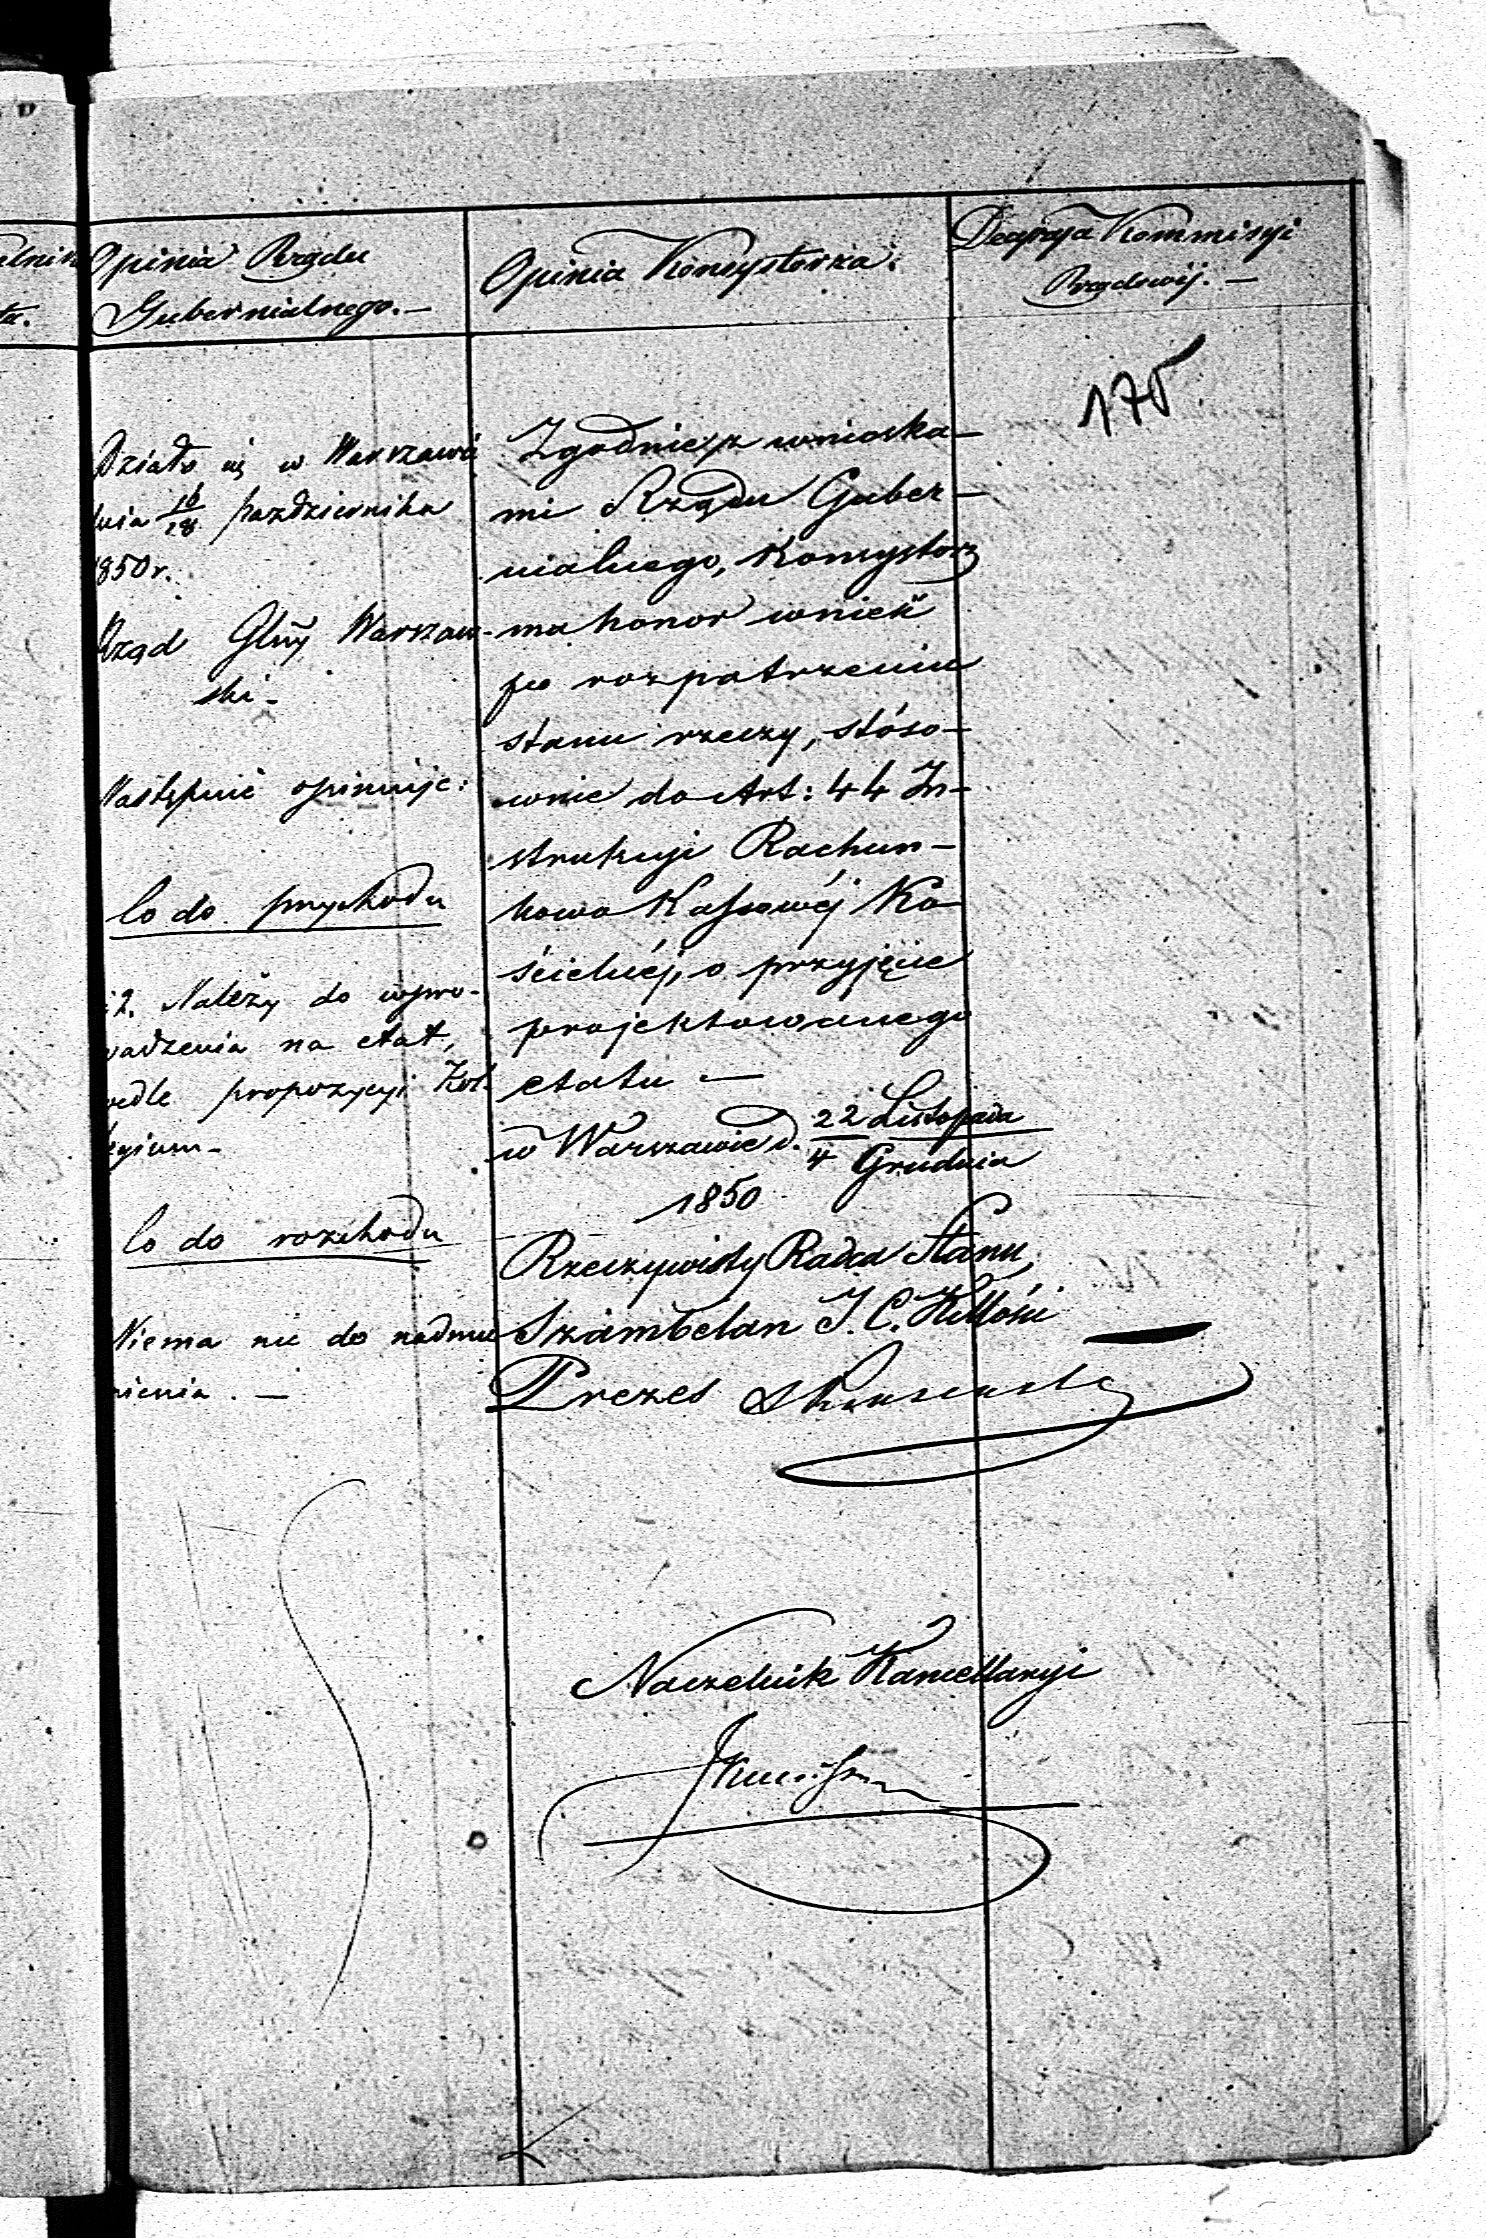 Opinia Rządu
Gubernialnego. —
Działo się w Warszawie
dnia 16/28 Października
1850 r.
Rząd Glny Warszaw-
ski -
Następnie opiniuje:
Co do przychodu
2. Należy do wpro-
wadzenia na etat,
wedle propozycyi Kol-
legium -
Co do rozchodu
Niema nic do nadmie
nienia. —
Opinia Konsystorza.
Zgodnie z wnioska-
mi Rządu Guber-
nialnego, Konsystorz
ma honor wnieść
po rozpatrzeniu
stanu rzeczy, stóso-
wnie do Art: 44 In-
strukcyi Rachun-
kowo Kassowéj Ko-
ścielnéj, o przyjęcie
projektowanego
etatu —
w Warszawie d. 22 Listopada
4 Grudnia
1850
Rzeczywisty Radca Stanu,
Szambelan J. C. Mości
Prezes
Naczelnik Kancellaryi
Decyzya Kommisyi
Rządowéj. —
175